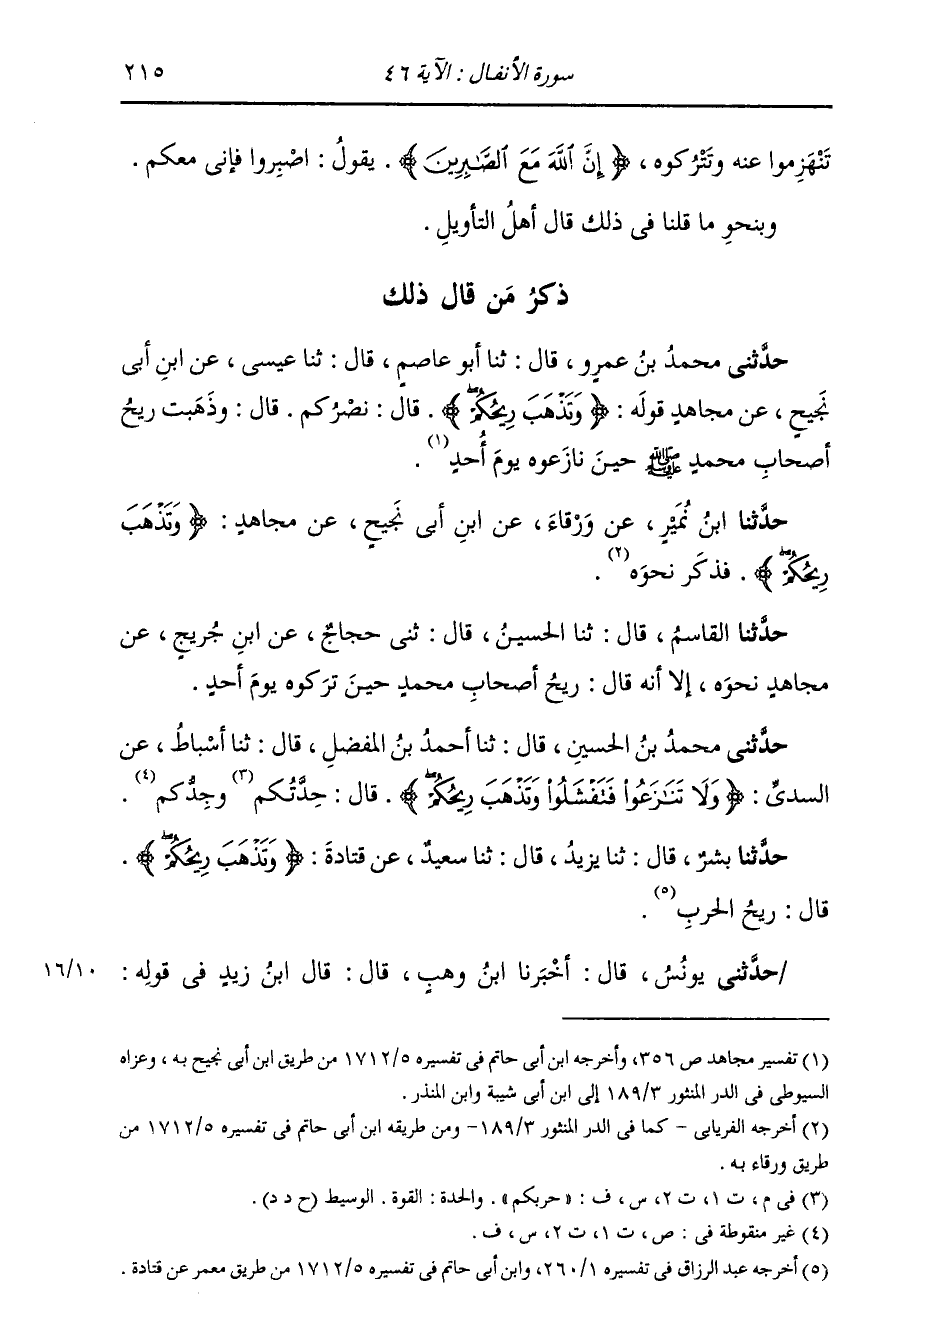 سورة الأنفال : الآية ٤٦ ٢١٥
تَنْهَزِموا عنه وتَتْرُكوه ، ﴿ إِنَّ ٱللَّهَ مَعَ ٱلصَّـٰبِرِينَ ﴾ . يقولُ : اصْبِروا فإنى معكم .
وبنحوِ ما قلنا فى ذلك قال أهلُ التأويلِ .
ذكرُ مَن قال ذلك
حدَّثنى محمدُ بنُ عمرٍو ، قال : ثنا أبو عاصمٍ ، قال : ثنا عيسى ، عن ابنِ أبى
نَجيحٍ ، عن مجاهدٍ قولَه : ﴿ وَتَذْهَبَ رِيحُكُمْۖ ﴾ . قال : نصْرُكم . قال : وذَهَبت ريحُ
أصحابِ محمدٍ ﷺ حينَ نازَعوه يومَ أُحدٍ(١) .
حدَّثنا ابنُ نُمَيْرٍ ، عن وَرْقاءَ ، عن ابنِ أبى نَجيحٍ ، عن مجاهدٍ : ﴿ وَتَذْهَبَ
رِيحُكُمْۖ ﴾ . فذكَر نحوَه(٢) .
حدَّثنا القاسمُ ، قال : ثنا الحسينُ ، قال : ثنى حجاجٌ ، عن ابنِ جُريجٍ ، عن
مجاهدٍ نحوَه ، إلا أنه قال : ريحُ أصحابِ محمدٍ حينَ ترَكوه يومَ أحدٍ .
حدَّثنى محمدُ بنُ الحسينِ ، قال : ثنا أحمدُ بنُ المفضلِ ، قال : ثنا أسْباطُ ، عن
السدىِّ : ﴿ وَلَا تَنَـٰزَعُوا۟ فَتَفْشَلُوا۟ وَتَذْهَبَ رِيحُكُمْۖ ﴾ . قال : حِدَّتُكم(٣) وجِدُّكم(٤) .
حدَّثنا بشرٌ ، قال : ثنا يزيدُ ، قال : ثنا سعيدٌ ، عن قتادةَ : ﴿ وَتَذْهَبَ رِيحُكُمْۖ ﴾ .
قال : ريحُ الحربِ(٥) .
/حدَّثنى يونُسُ ، قال : أخْبَرنا ابنُ وهبٍ ، قال : قال ابنُ زيدٍ فى قولِه : ١٦/١٠
(١) تفسير مجاهد ص ٣٥٦، وأخرجه ابن أبى حاتم فى تفسيره ١٧١٢/٥ من طريق ابن أبى نجيح به ، وعزاه
السيوطى فى الدر المنثور ١٨٩/٣ إلى ابن أبى شيبة وابن المنذر .
(٢) أخرجه الفريابى - كما فى الدر المنثور ١٨٩/٣- ومن طريقه ابن أبى حاتم فى تفسيره ١٧١٢/٥ من
طريق ورقاء به .
(٣) فى م ، ت ١، ت ٢، س ، ف : « حربكم » . والحدة : القوة . الوسيط (ح د د) .
(٤) غير منقوطة فى : ص ، ت ١، ت ٢، س ، ف .
(٥) أخرجه عبد الرزاق فى تفسيره ٢٦٠/١، وابن أبى حاتم فى تفسيره ١٧١٢/٥ من طريق معمر عن قتادة .